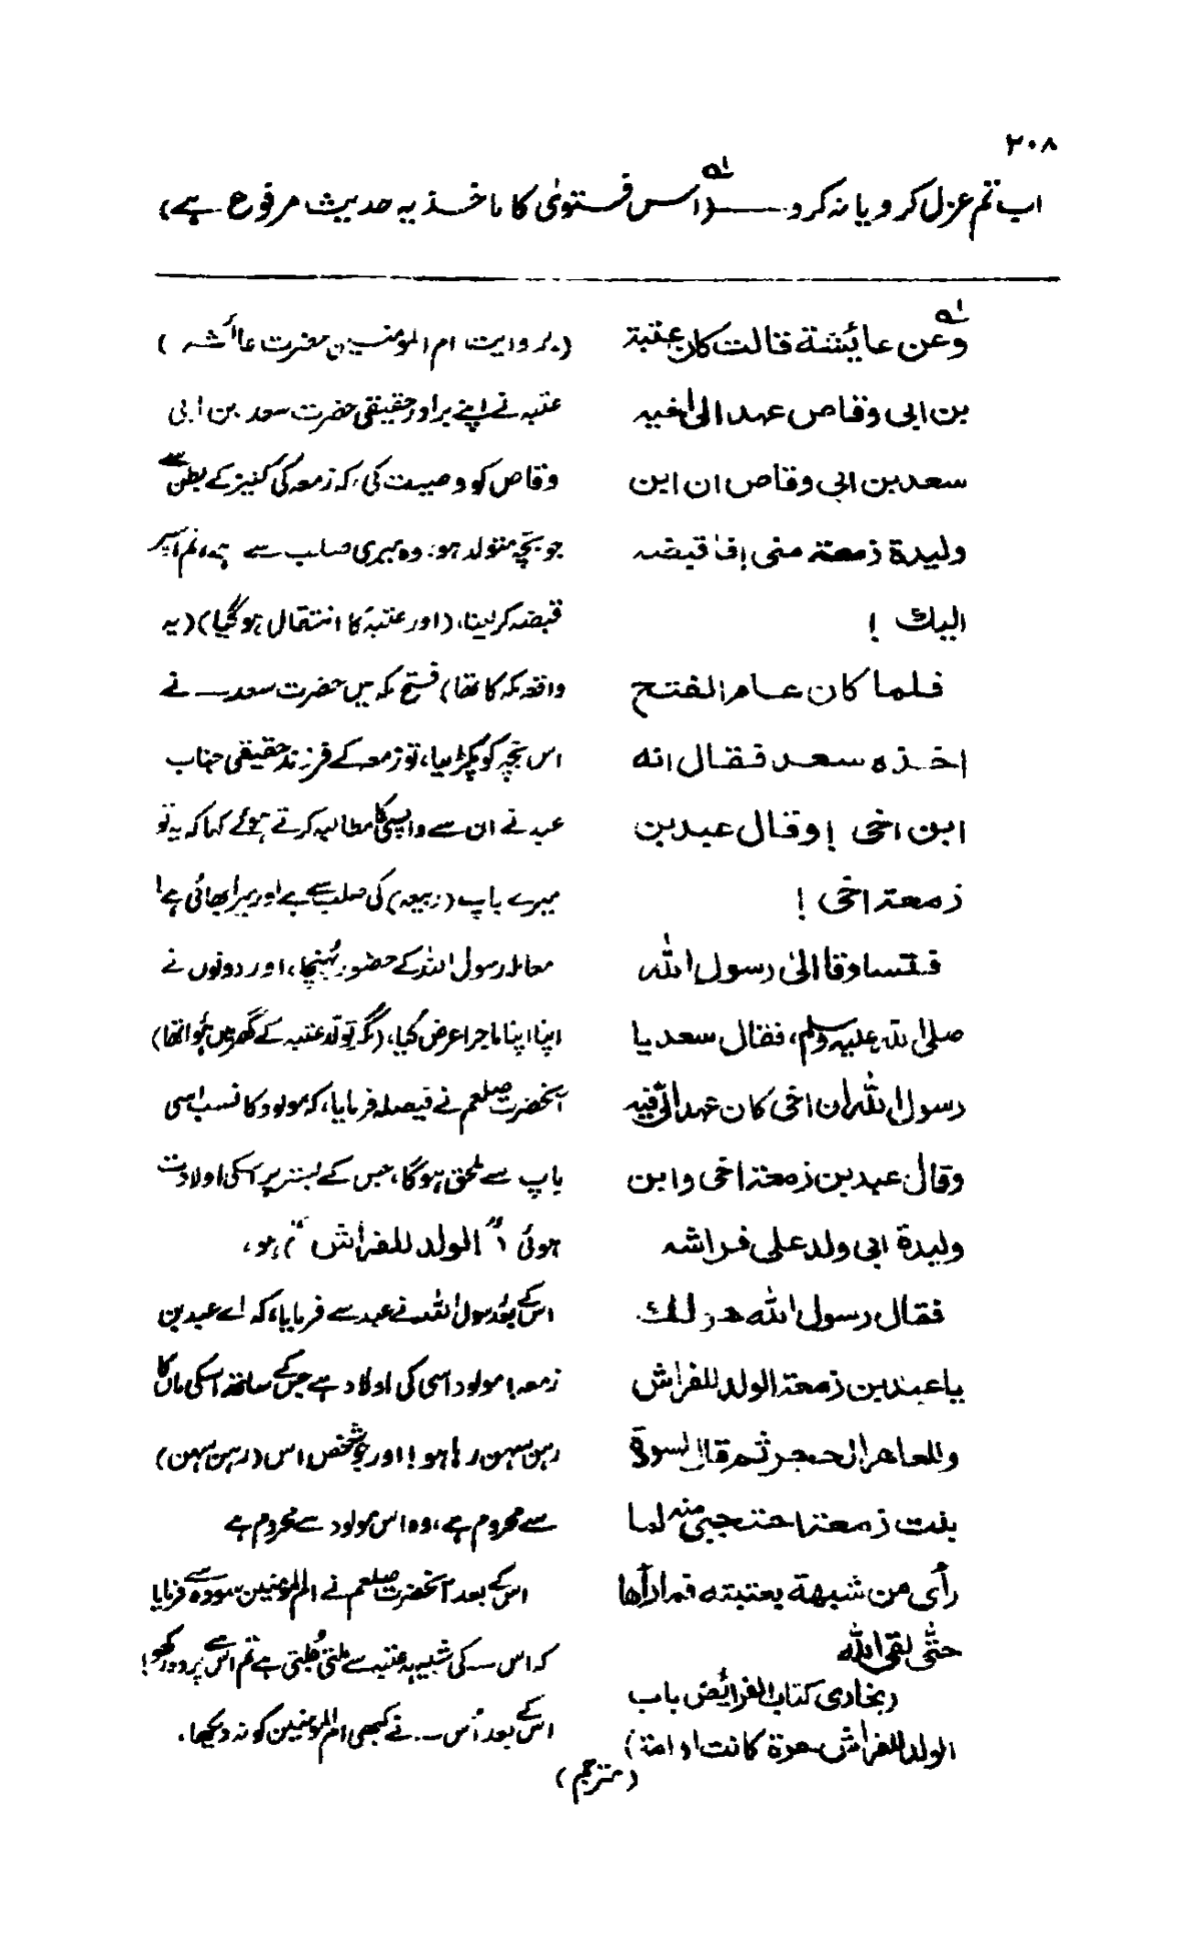 ۲۰۸
اب تم عزل کرو یا نہ کرو ـــــ (اس فتویٰ کا ماخذ یہ حدیث مرفوع ہے)
وعن عائیشة قالت کان عتبة
بن ابی وقاص عهد الی اخیه
سعد بن ابی وقاص ان ابن
ولیدة زمعة منی فاقبضه
الیك !
فلما کان عام الفتح
اخذه سعد فقال انه
ابن اخی ! وقال عبد بن
زمعة اخی !
فتساوقا الی رسول الله
صلی الله علیه وسلم، فقال سعد یا
رسول الله ان اخی کان عهد الی فیه
وقال عبد بن زمعة اخی وابن
ولیدة ابی ولد علی فراشه
فقال رسول الله هو لك
یا عبد بن زمعة الولد للفراش
وللعاهر الحجر ثم قال لسودة
بنت زمعة احتجبی منه لما
رأی من شبهة بعتبة فما رأها
حتّٰی لقی الله
(بخاری کتاب الفرائض باب
الولد للفراش حرة کانت او امة)
(بروایت ام المومنین حضرت عائشہ)
عتبہ نے اپنے برادر حقیقی حضرت سعد بن ابی
وقاص کو وصیت کی، کہ زمعہ کی کنیز کے بطن سے
جو بچّہ متولد ہو، وہ میری صلب سے ہے، تم اسپر
قبضہ کر لینا، (اور عتبہ کا انتقال ہو گیا) (یہ
واقعہ مکہ کا تھا) فتح مکہ میں حضرت سعد نے
اس بچّہ کو پکڑ لیا، تو زمعہ کے فرزند حقیقی جناب
عبد نے ان سے واپسی کا مطالبہ کرتے ہوئے کہا کہ یہ تو
میرے باپ (ربیعہ) کی صلب سے ہے اور میرا بھائی ہے!
معاملہ رسول اللہ کے حضور پہنچا، اور دونوں نے
اپنا اپنا ماجرا عرض کیا، (مگر تولد عتبہ کے گھر میں ہوا تھا)
آنحضرت صلعم نے فیصلہ فرمایا، کہ مولود کا نسب اسی
باپ سے ملحق ہوگا، جس کے بستر پر اسکی ولادت
ہوئی ("الولد للفراش") ہو،
اس کے بعد رسول اللہ نے عبد سے فرمایا، کہ اے عبد بن
زمعہ! مولود اسی کی اولاد ہے جس کے ساتھ اسکی ماں کا
رہن سہن رہا ہو! اور جو شخص اس (رہن سہن)
سے محروم ہے، وہ اس مولود سے محروم ہے
اس کے بعد آنحضرت صلعم نے ام المومنین سودہ سے فرمایا
کہ اس ــ کی شبیہ عتبہ سے ملتی جُلتی ہے تم اس سے پردہ رکھو!
اس کے بعد اُس ــ نے کبھی ام المومنین کو نہ دیکھا۔
(مترجم)